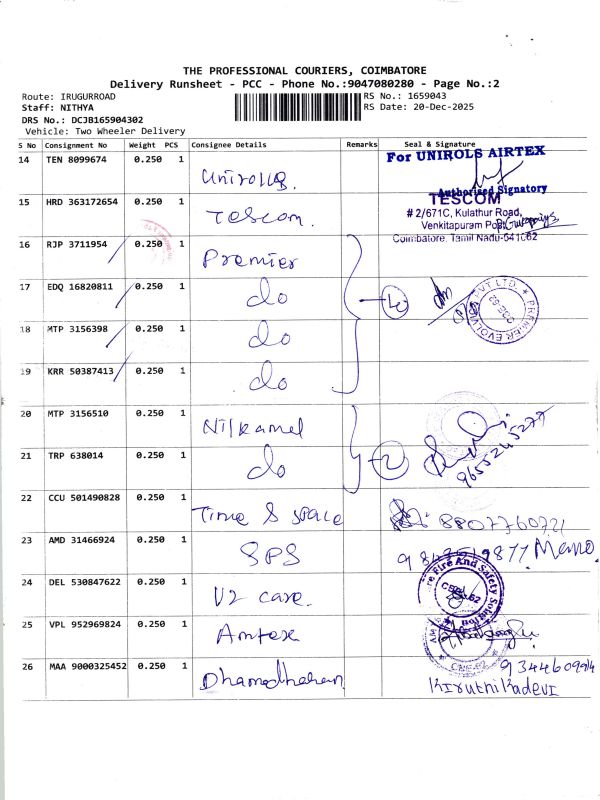 THE PROFESSIONAL COURIERS, COIMBATORE
Delivery Runsheet - PCC - Phone No.:9047080280 - Page No.:2
Route: IRUGURROAD
Staff: NITHYA
DRS No.: DCJB165904302
Vehicle: Two Wheeler Delivery
RS No.: 1659043
RS Date: 20-Dec-2025
S No Consignment No Weight PCS Consignee Details Remarks Seal & Signature
14 TEN 8099674 0.250 1 Unirolls. For UNIROLS AIRTEX
Authorised Signatory
15 HRD 363172654 0.250 1 Tescom. TESCOM
# 2/671C, Kulathur Road,
Venkitapuram Post
Coimbatore, Tamil Nadu-641 062
16 RJP 3711954 0.250 1 Premier
17 EDQ 16820811 0.250 1 do PREMIER EVOLVICS PVT LTD
18 MTP 3156398 0.250 1 do
19 KRR 50387413 0.250 1 do
20 MTP 3156510 0.250 1 Nilkamel
21 TRP 638014 0.250 1 do 2 9655245277
22 CCU 501490828 0.250 1 Time & space 8807760721
23 AMD 31466924 0.250 1 SPS
24 DEL 530847622 0.250 1 V2 care. Fire And Safety
25 VPL 952969824 0.250 1 Amtex
26 MAA 9000325452 0.250 1 Dhamodharan
Kiruthikadevi